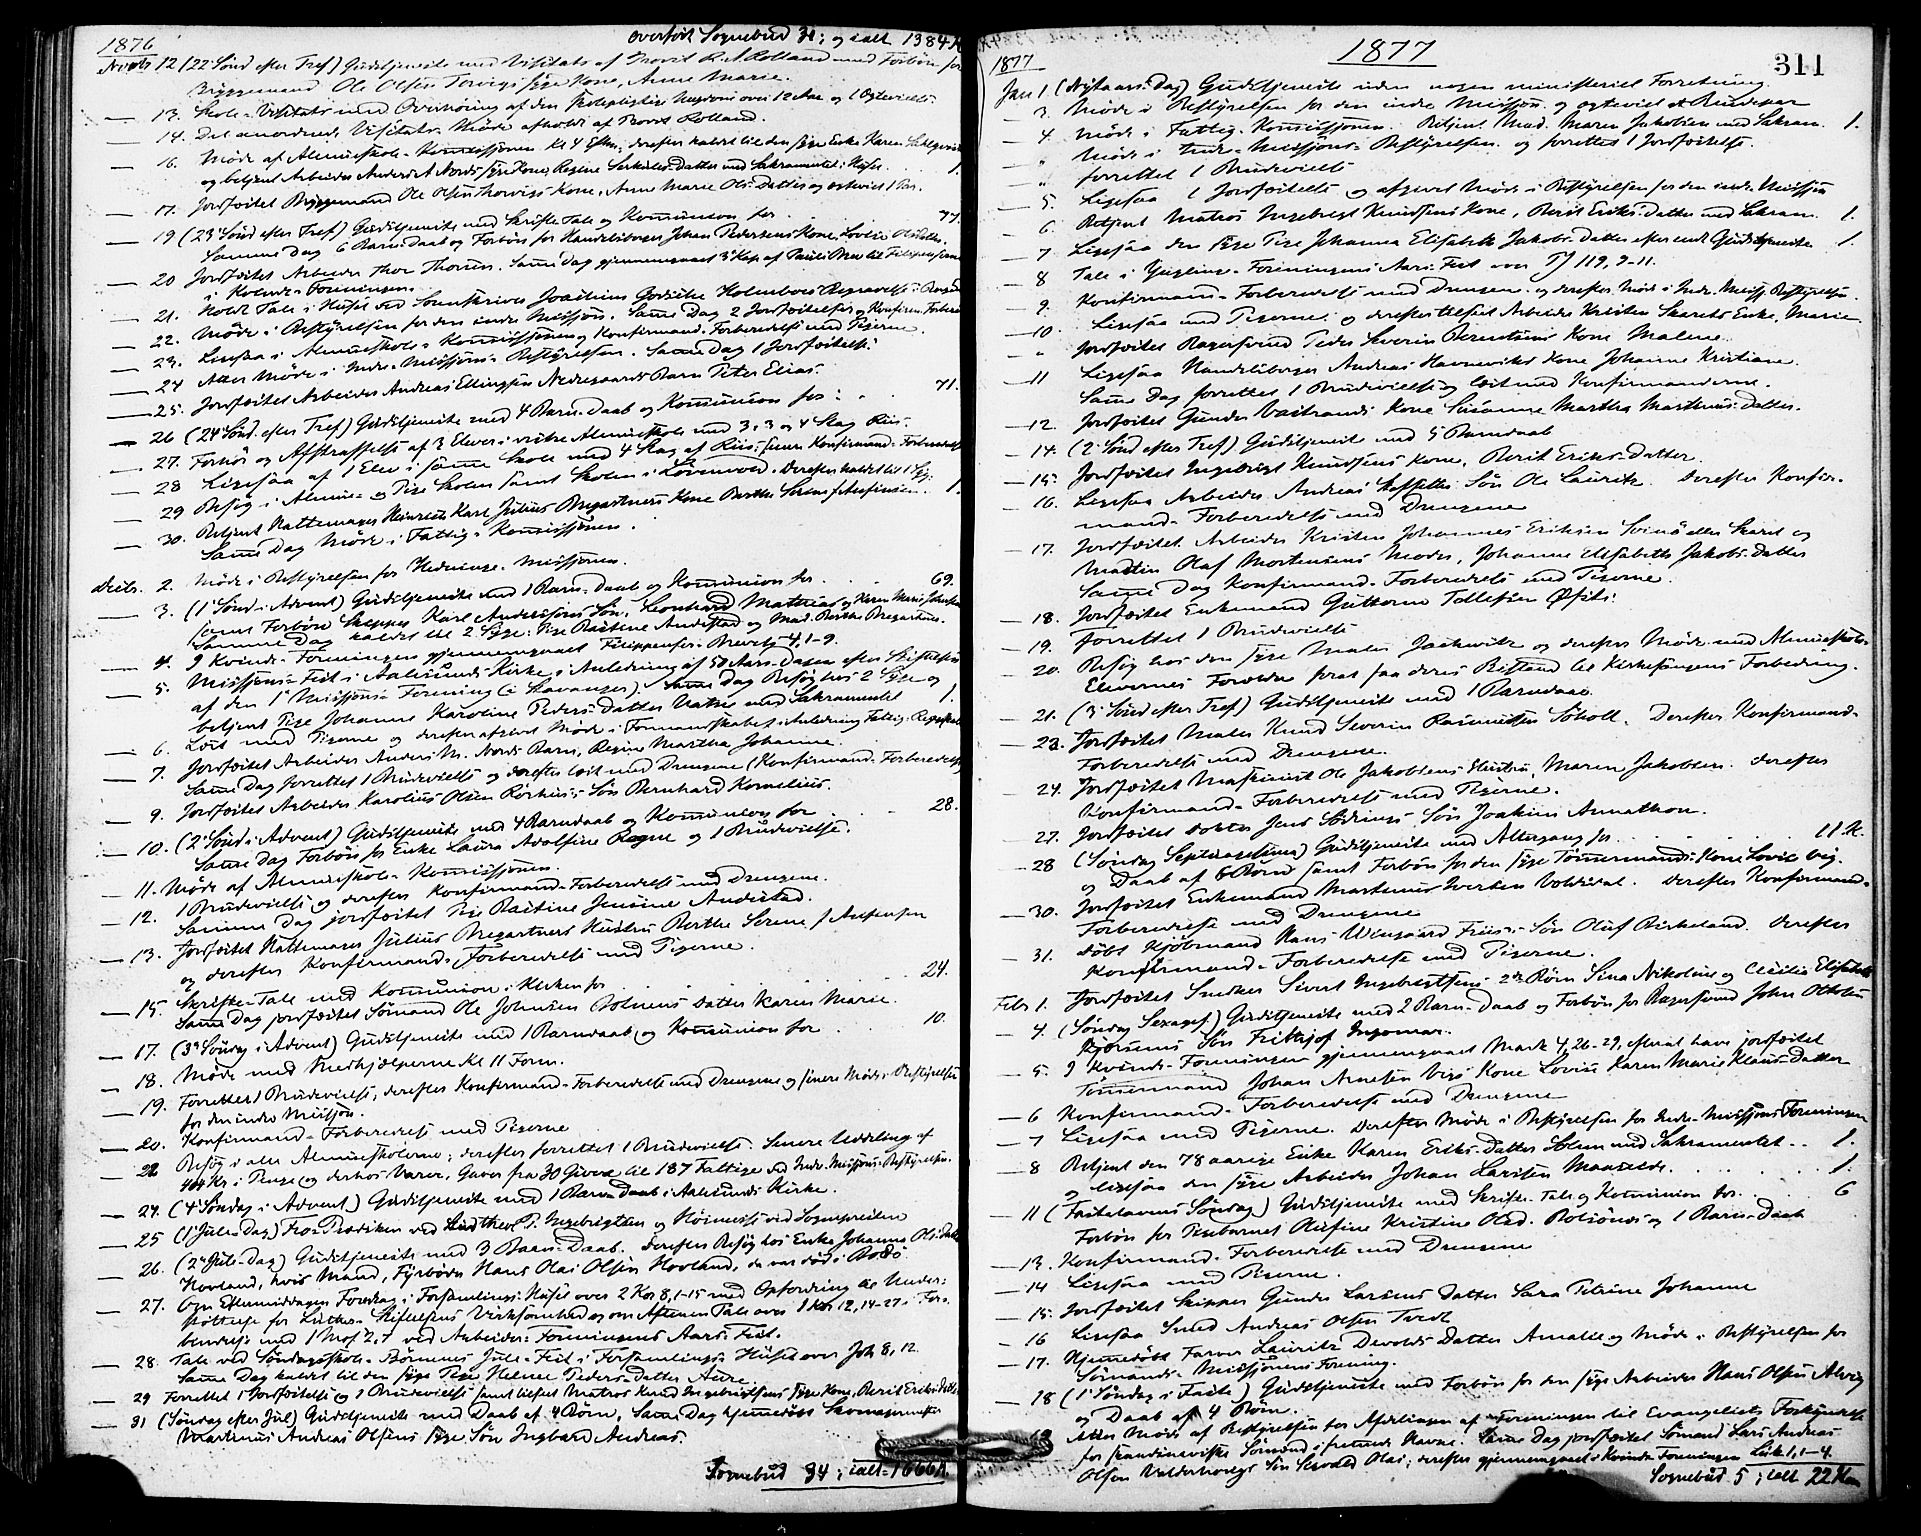 1876
overført Sognebud 31; og ialt 1384 K
Novbr 12 (22 Sönd efter Tref) Gudstjeneste med Visitats af Provst Rolland med Forbön for
Bryggemand Ole Olsen Torvigs syge Kone, Anne Marie.
13. Skole-Visitats med Overhöring af den skolepligtige Ungdom over 12 Aar og 1 Ægtevielse
14. Det anordnede Visitats-Möde afholdt af Provst Rolland.
16. Möde af Almueskole-Kommissjonen Kl 4 Eftm, derefter kaldet til den syge Enke Karen
og betjent Arbeider Anders Nords syge Kone, Regine Datter med Sakramentet i Huset. 1.
17. Jordfæstet Bryggemand Ole Olsen Torvigs Kone, Anne Marie Ols-Datter og ægteviet 1 Par.
19 (23 Sönd efter Tref) Gudstjeneste med Skrifte Tale og Kommunion for 77.
Samme Dag 6 Barn-Daab og Forbön for Handelsborger Johan Pedersens Kone Lovise
20 Jordfæstet Arbeider Thor Thorsen. Samme Dag gjennemgaaet 3 Kap af Pauli Brev til Filippenserne
i Kvinde-Foreningen.
21. Holdt Tale i Huset ved Sorenskriver Joachim Godske Holmboes Begravelse
22. Möde i Bestyrelsen for den indre Missjon. Samme Dag 2 Jordfæstelser og Konfirm. Forbered
23. Ligesaa i Almueskole-Kommissjonen og Konfirmand-Forberedelse med Pigerne.
24 Atter Möde i Indre-Missjons-Bestyrelsen. Samme Dag 1 Jordfæstelse
25. Jordfæstet Arbeider Andreas Ellingsen Nedregaards Barn Peter Elias
26 (24 Sönd. efter Tref) Gudstjeneste med 4 Barn-Daab og Kommunion for 71.
27. Forhör og Afstraffelse af 3 Elever i vestre Almueskole med 3, 3 og 4 Slag Riis.
28 Ligesaa af 1 Elev i samme Skole med 4 Slag af Riis; senere Konfirmand-Forberedelse
29 Besög i Almue- og Pige Skolen samt Skolen i Lövenvold. Derefter kaldet til 1 Syg.
30. Betjent Hattemager Heinrich Karl Julius Bregartners Kone Berthe Serene f. Aufinsen. 1.
Samme Dag Möde i Fattig-Kommissjonen.
Decbr. 2. Möde i Bestyrelsen for Hedninge-Missjonen.
3. (1 Sönd i Advent) Gudstjeneste med 1 Barn-Daab og Kommunion for 69.
samt Forbön Skipper Karl Anderssons Sön, Leonhard Mathias og Karen Marie Johnsen
Samme Dag kaldet til 2 Syge: Pige Rastine Andestad og Mad. Berthe Bregartner.
4. I Kvinde-Foreningen gjennemgaaet Filippenser-Brevet 4, 1-9.
5. Missjons-Fest i Aalesunds Kirke i Anledning af 50 Aars-Dagen efter Stiftelsen
af den 1ste Missjons-Forening (i Stavanger). Samme Dag Besög hos 2 Syge og
betjent Pige Johanne Karoline Peders-Datter Vatne med Sakramentet 1.
6. Læst med Pigerne og derefter afgivet Möde i Formandskabet i Anledning Fattig-Regnskabet
7. Jordfæstet Arbeider Anders M. Nords Barn, Regine Martha Johanne.
Samme Dag forrettet 1 Brudevielse og derefter læst med Drengene (Konfirmand-Forberedelse)
9. Jordfæstet Arbeider Karolius Olsen Rörhus's Sön Bernhard Kornelius.
10. (2 Sönd i Advent) Gudstjeneste med 4 Barndaab og Kommunion for 28.
Samme Dag Forbön for Enke Laura Adolfine Rogne og 1 Brudevielse.
11. Möde af Almueskole-Kommissjonen.
12. 1 Brudevielse og derefter Konfirmand-Forberedelse med Drengene.
Samme Dag jordfæstet Pige Rastine Jensine Andestad.
13. Jordfæstet Hattemager Julius Bregartners Hustru Berthe Serene f. Aufinsen
og derefter Konfirmand-Forberedelse med Pigerne.
15. Skrifte-Tale med Kommunion i Kirken for 24.
Samme Dag jordfæstet Sömand Ole Johnsen Volnæs's Datter Karen Marie.
17. (3 Söndag i Advent) Gudstjeneste med 1 Barndaab og Kommunion for 10.
18. Möde med Medhjælperne Kl 11 Form.
19. Forrettet 1 Brudevielse, derefter Konfirmand-Forberedelse med Drengene og senere Möde i Bestyrelsen
for den indre Missjon.
20. Konfirmand-Forberedelse med Pigerne
22 Besög i alle Almueskolerne; derefter forrettet 1 Brudevielse. Senere Uddeling af
Kr i Penge og desuden Varer, Gaver fra 30 Givere til 187 Fattige ved Indre-Missjons-Bestyrelsen.
24. (4 Söndag i Advent) Gudstjeneste med 1 Barn-Daab i Aalesunds Kirke.
25 (1 Jule-Dag) Fro-Prædiken ved P. Ingebrigtsen og Höimesse ved Sognepresten
26. (2 Jule-Dag) Gudstjeneste med 3 Barn-Daab. Derefter Besög hos Enke Johanne Ols-Datter
Hovland, hvis Mand, Fyrböder Hans Olai Olsen Hovland, da var död i Bodö.
27. Om Eftermiddagen Foredrag i Forsamlings-Huset over 2 Kor 8, 1-15 med Opfordring til Under-
støttelse for Luther-Stiftelsens Virksomhed og om Aftenen Tale over 1 Kor 12, 14-27 i For-
bindelse med 1 Mos 2, 7 ved Arbeider-Foreningens Aars-Fest.
28. Tale ved Söndagsskole-Börnenes Jule-Fest i Forsamlings-Huset over Joh 8, 12.
Samme Dag kaldet til den syge Pige Helene Peders-Datter Aure.
29 Forrettet 1 Jordfæstelse og 1 Brudevielse samt Matros Knud Ingebrigtsens syge Kone, Berit Eriks-Datter
31 (Söndag efter Jul) Gudstjeneste med Daab af 4 Börn. Samme Dag hjemmedöbt Skomagermester
Martinus Andreas Olsens syge Sön Ingvard Andreas.
Sognebud 34; ialt 1666 K.
311
1877
1877
Jan 1. (Nytaars-Dag) Gudstjeneste uden nogen ministeriel Forretning
3. Möde i Bestyrelsen for den indre Missjon og ægteviet et Brudepar
4. Möde i Fattig-Kommissjonen. Betjent Mad. Maren Jakobsen med Sakram. 1.
" Möde i Indre-Missjons-Bestyrelsen og forrettet 1 Jordfæstelse.
" forrettet 1 Brudevielse
5. Ligesaa 1 Jordfæstelse og afgivet Möde i Bestyrelsen for den indre Missjon
6. Betjent Matros Ingebrigt Knudsens Kone, Berit Eriks-Datter med Sakram. 1.
7 Ligesaa den syge Pige Johanna Elisabeth Jakobs-Datter efter endt Gudstjeneste 1.
8 Tale i Ynglinge-Foreningens Aars-Fest over Ps 119, 9-11.
9. Konfirmand-Forberedelse med Drengene og derefter Möde i Indr. Miss. Bestyrelse.
10. Ligesaa med Pigerne; og derefter tilseet Arbeider Kristen Skarets Enke, Marie
" Jordfæstet Bagersvend Peder Severin Berentsens Kone Malene
11 Ligesaa Handelsborger Andreas Havnevik's Kone Johanne Kristiane.
Samme Dag forrettet 1 Brudevielse og læst med Konfirmanderne.
12. Jordfæstet Gunder Vastrands Kone Susanne Martha Martinus-Datter.
14. (2 Sönd efter Tref) Gudstjeneste med 5 Barndaab
15. Jordfæstet Ingebrigt Knudsens Kone, Berit Eriks-Datter.
16. Ligesaa Arbeider Andreas Sön Ole Lauritz. Derefter Konfir-
mand-Forberedelse med Drengene
17. Jordfæstet Arbeider Kristen Johannes Eriksen Svinö eller Skaret og
Martin Olaf Mortensens Moder, Johanne Elisabeth Jakobs-Datter
Samme Dag Konfirmand-Forberedelse med Pigerne.
18. Jordfæstet Enkemand Guttorm Tollefsen
19. forrettet 1 Brudevielse
20. Besög hos den syge Maler Jackwitz og derefter Möde med Almueskole-
Elevernes Forældre for at faa deres Bistand til Kirkesangens Forbedring.
21. (3 Sönd efter Tref) Gudstjeneste med 1 Barndaab.
23. Jordfæstet Maler Knud Severin Rasmussen Söholt. Derefter Konfirmand-
Forberedelse med Drengene.
24. Jordfæstet Maskinist Ole Jakobsens Hustru, Maren Jakobsen. Derefter
Konfirmand-Forberedelse med Pigerne.
27. Jordfæstet Doktor Jens Sörings Sön Joakim Annathon.
28 (Söndag Septuagesima) Gudstjeneste med Altergang for 11 K.
og Daab af 6 Börn samt Forbön for den syge Tömmermands-Kone Lovise Vig.
30. Jordfæstet Enkemand Martinus Iversen Voldsdal. Derefter Konfirmand-
Forberedelse med Drengene
31. döbt Kjöbmand Hans Wingaard Friis's Sön Oluf Birkeland. Derefter
Konfirmand-Forberedelse med Pigerne.
Febr 1. Jordfæstet Snedker Sivert Ingebrigtsens 2de Börn Sina Nikoline og Cecilia Elisabeth
4. (Söndag Sexages) Gudstjeneste med 2 Barn-Daab og Forbön for Bagersvend John Ottesen
Sön Fritthjof Ingomar.
5. I Kvinde-Foreningen gjennemgaaet Mark 4, 26-29, efterat have jordfæstet
Tömmermand Johan Arnesen Vigs Kone Lovise Karen Marie Klaus-Datter
6 Konfirmand-Forberedelse med Drengene
7 Ligesaa med Pigerne. Derefter Möde i Bestyrelsen for Indre-Missjons Foreningen
8 Betjent den 78 aarige Enke Karen Eriks-Datter med Sakramentet. 1.
og ligesaa den syge Arbeider Johan Larsen Maaseide. 1.
11 (Fastelavens Söndag) Gudstjeneste med Skrifte-Tale og Kommunion for 6
Forbön for Pigebarnet Olufine Kristine Olsd. Rotsönæs og 1 Barn-Daab
13. Konfirmand-Forberedelse med Drengene
14 Ligesaa med Pigerne.
15. Jordfæstet Skipper Gunder Larsens Datter Lara Petrine Johanne
16 Ligesaa Smed Andreas Olsen Tvedt
17. Hjemmedöbt Farver Lauritz Devolds Datter Amalie og Möde i Bestyrelsen for
Sömands-Missjonens Forening.
18 (1 Söndag i Faste) Gudstjeneste med Forbön for den syge Arbeider Hans Olsen Alvig
og Daab af 4 Börn.
19 Atter Möde af Bestyrelsen for Afdelingen af "Foreningen til Evangeliets Forkyndelse
for skandinaviske Sömænd i fremmede Havne. Samme Dag jordfæstet Sömand Lars Andreas
Olsen Valderhoug's Sön Sevald Olai; derefter gjennemgaaet i Kvinde-Foreningen Luk. 1, 1-4.
Sognebud 5; ialt 22 Kom